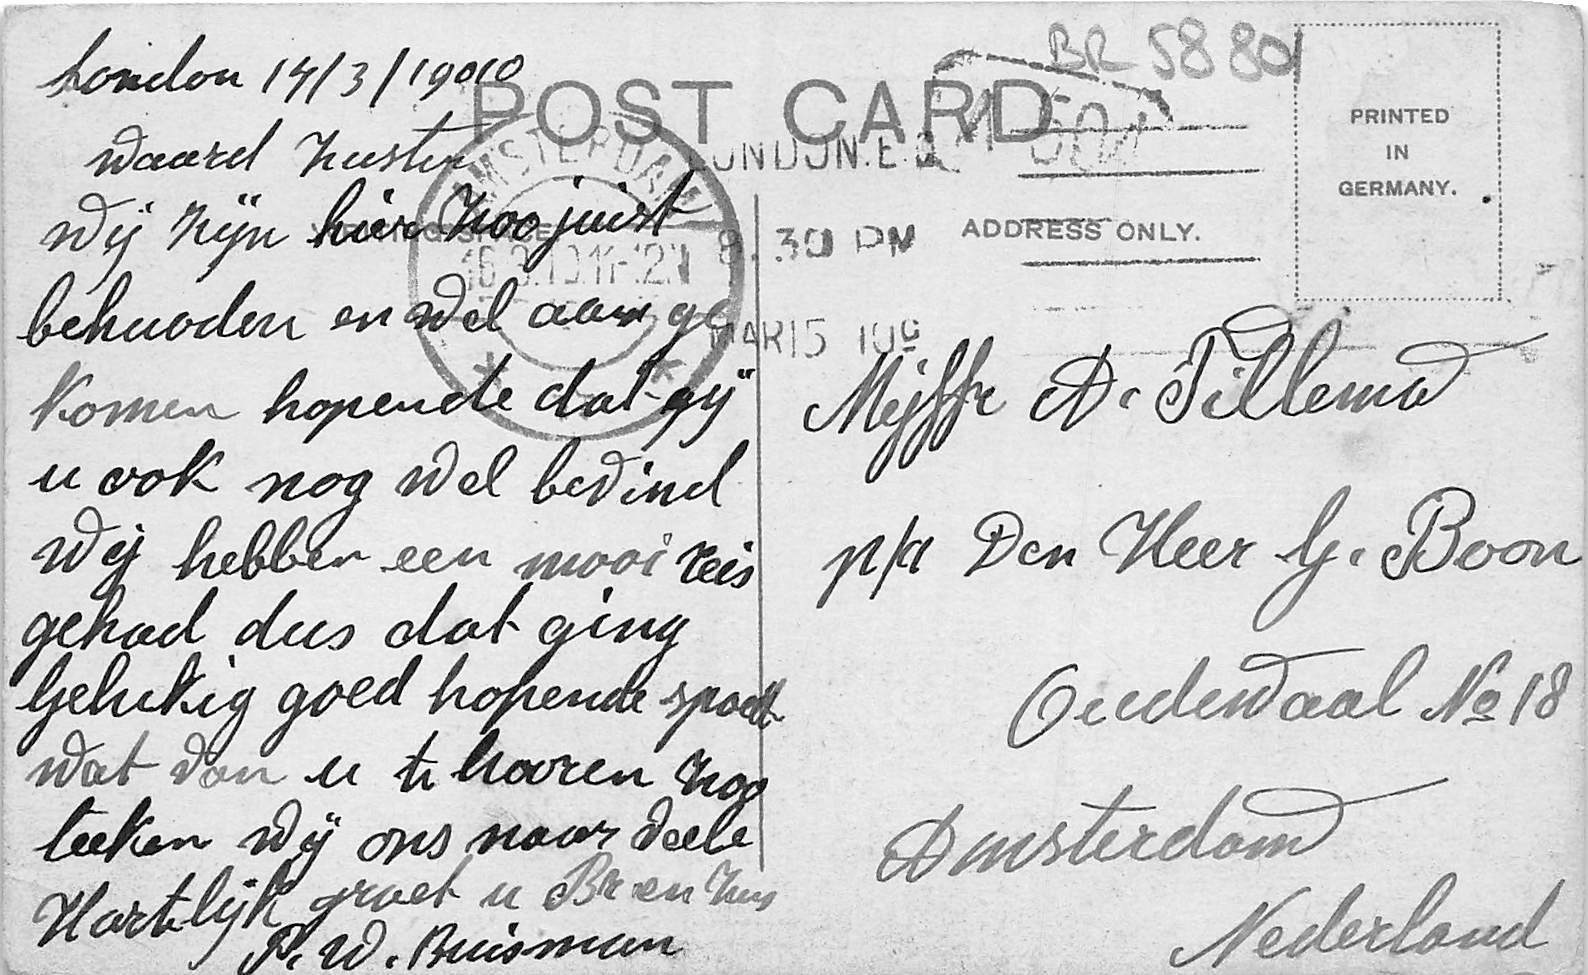 London 14/3/1910
BR 5880
POST CARD
PRINTED
IN
GERMANY.
AMSTERDAM
LONDON. E.C.
8.30 PM
MAR 15 10
16.3.10.11-12N
ADDRESS ONLY.
Waard Zuster
Wij zijn hier zoo juist
behuoden en wel aan ge
komen hopende dat gij
u ook nog wel bevind
Wij hebben een mooi reis
gehad dus dat ging
Gelukkig goed hopende spoedt
wat van u te hooren zoo
teeken wij ons naar veele
Hartelijk groet u Br en Zus
P. W. Buisman
Mejffr A. Tillema
p/a Den Heer G. Boon
Oudewaal No 18
Amsterdam
Nederland